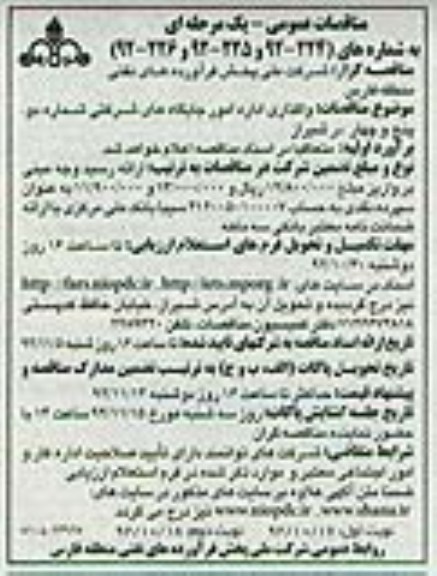 مناقصات عمومی - یک مرحله ای
به شماره های (۲۲۴-۹۲ و ۲۲۵-۹۲ و ۲۲۶-۹۲)
مناقصه گزار: شرکت ملی پخش فرآورده های نفتی
منطقه فارس
موضوع مناقصات: واگذاری اداره امور جایگاه های شرکتی شماره دو
پنج و چهار در شیراز
برآورد اولیه: متعاقبا در اسناد مناقصه اعلام خواهد شد.
نوع و مبلغ تضمین شرکت در مناقصات به ترتیب: ارائه رسید وجه مبنی
بر واریز مبلغ ریال و به عنوان
سپرده نقدی به حساب سیبا بانک ملی مرکزی یا ارائه
ضمانت نامه معتبر بانکی سه ماهه
مهلت تکمیل و تحویل فرم های استعلام ارزیابی: تا ساعت ۱۶ روز
دوشنبه ۹۲/۱۰/۳۰
اسناد در سایت های http://iets.mporg.ir , http://fars.niopdc.ir
نیز درج گردیده و تحویل آن به آدرس شیراز، خیابان حافظ
دفتر کمیسیون مناقصات، تلفن
تاریخ ارائه اسناد مناقصه به شرکتهای تایید شده: تا ساعت ۱۶ روز شنبه
تاریخ تحویل پاکات (الف، ب و ج) به ترتیب تضمین، مدارک مناقصه و
پیشنهاد قیمت: حداکثر تا ساعت ۱۶ روز دوشنبه
تاریخ جلسه گشایش پاکات: روز سه شنبه مورخ ۹۲/۱۱/۱۵ ساعت با
حضور نماینده مناقصه گران
شرایط متقاضی: شرکت های توانمند دارای تأیید صلاحیت اداره کار و
امور اجتماعی معتبر و موارد ذکر شده در فرم استعلام ارزیابی
ضمنا متن آگهی علاوه بر سایت های مذکور در سایت های:
www.niopdc.ir , www.shana.ir نیز درج می گردد.
نوبت اول: نوبت دوم: ۹۲/۱۰/۱۸
روابط عمومی شرکت ملی پخش فرآورده های نفتی منطقه فارس